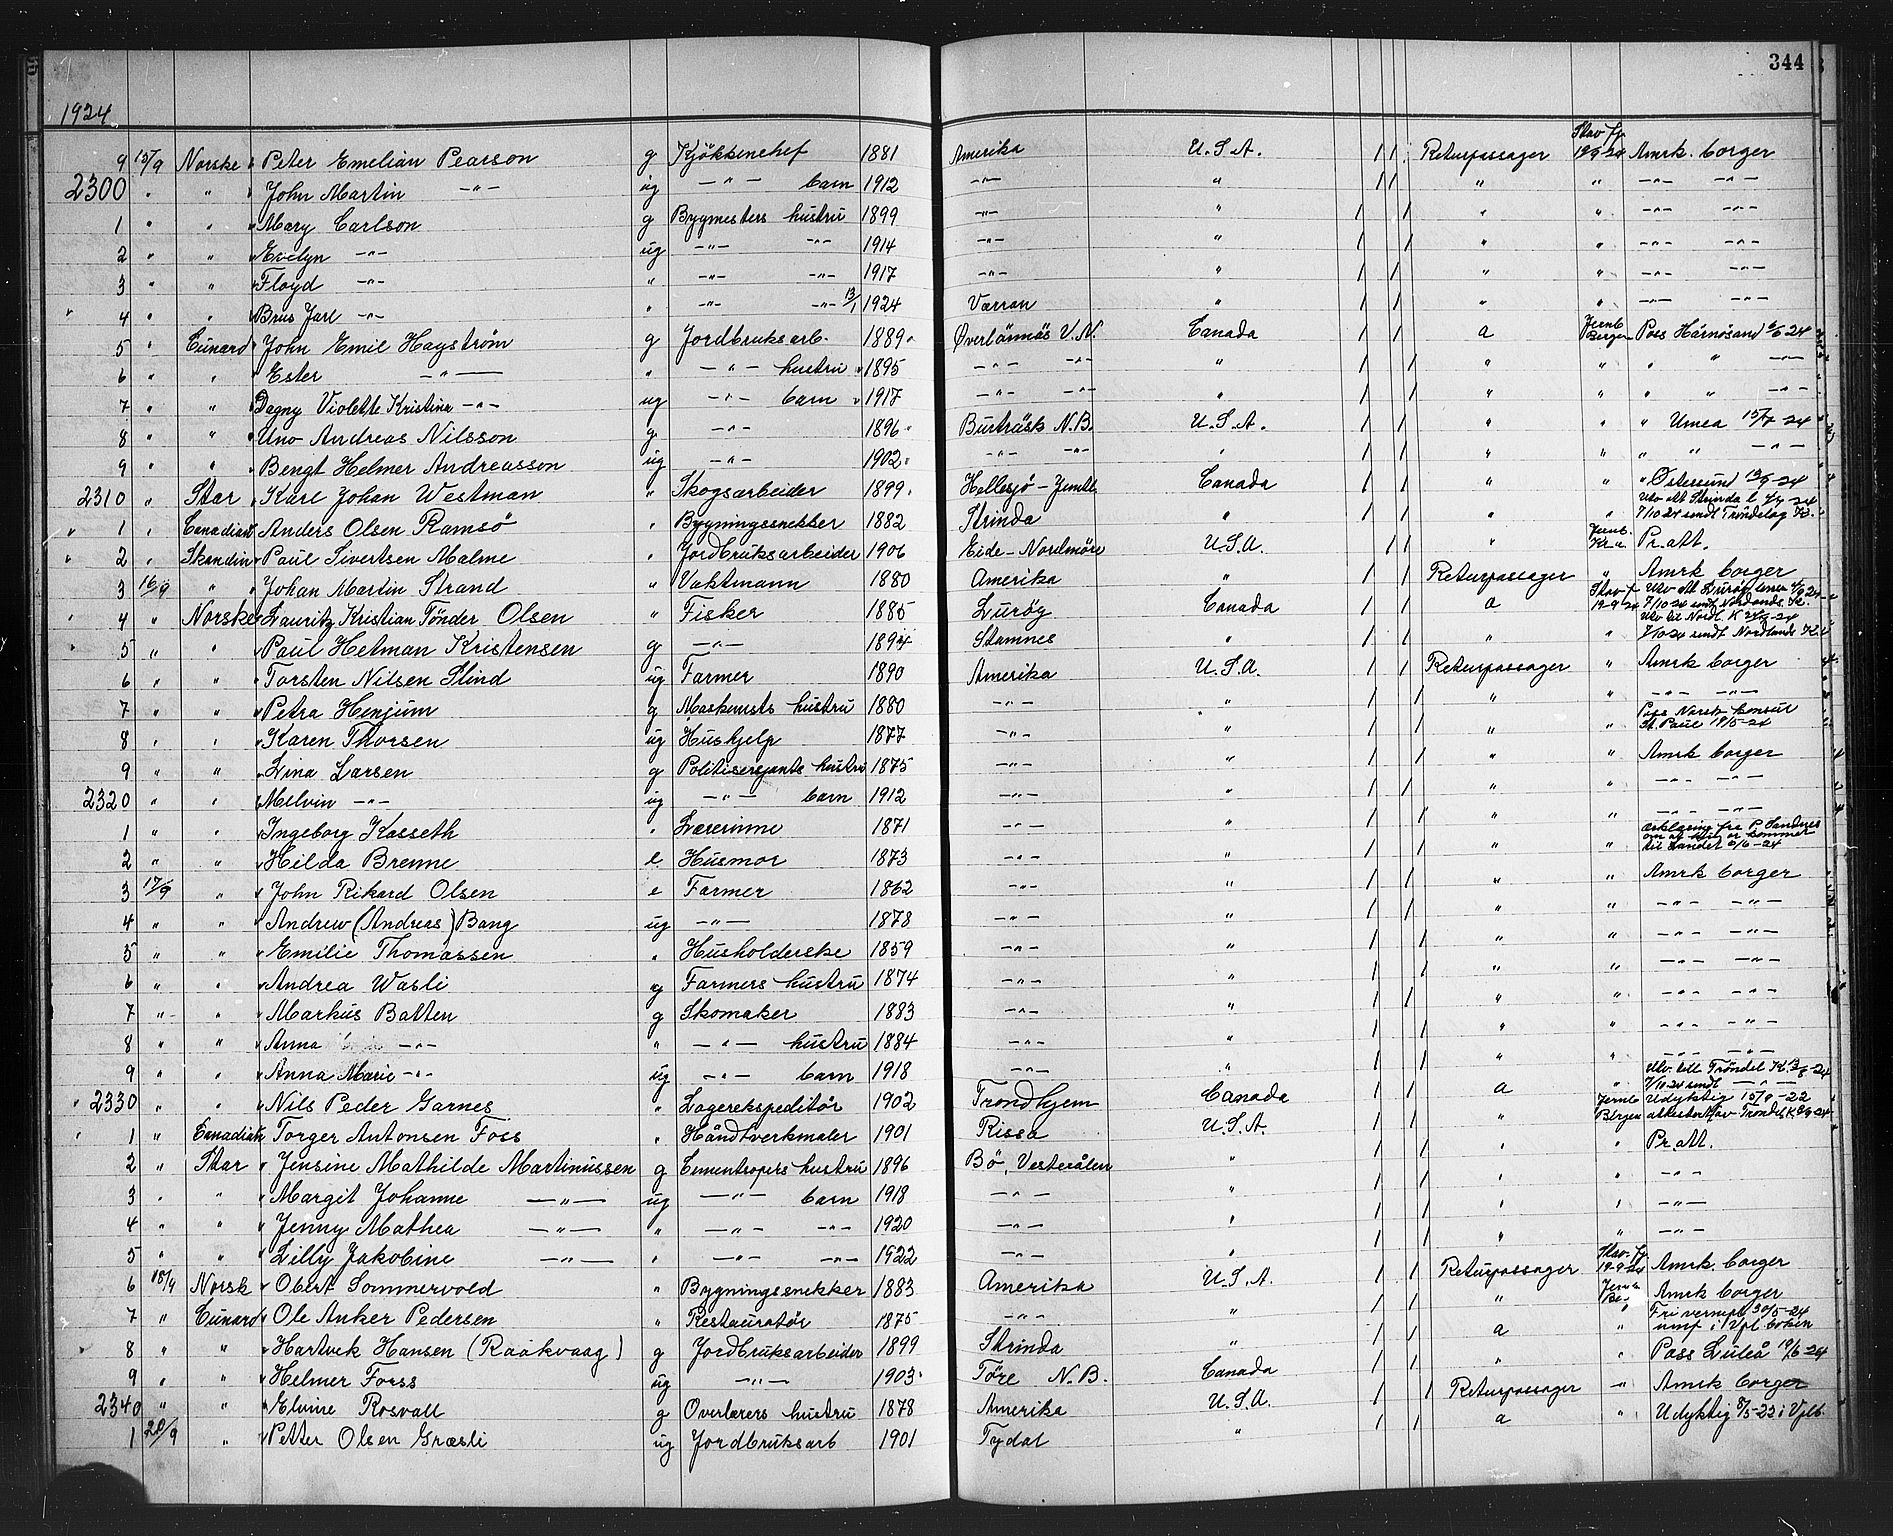 344
1924
9 15/9 Norske " Peter Emelian Pearson g Kjökkenchef 1881 Amerika U.S.A. 1 1 Returpassager Stav. fj. 19/9 24 Amrk. borger
2300 " " " John Martin —"— ug —"— barn 1912 —"— " 1 1 " " —"— —"—
1 " " " Mary Carlson g Bygmesters hustru 1899 —"— " 1 1 " " —"— —"—
2 " " " Evelyn —"— ug —"— —"— 1914 —"— " 1 1 " " —"— —"—
3 " " " Floyd —"— " —"— —"— 1917 —"— " 1 1 " " —"— —"—
" 4 " " " Brus Jarl —"— " —"— —"— 13/1 1924 Værran " 1 1 " " —"— —"—
5 " Cunard " John Emil Hagström g Jordbruksarb. 1889 Överlännäs V.N. Canada 1 1 a Jernb Bergen Pass Härnösand 6/5 24
6 " " " Ester —"— " —"— hustru 1895 —"— —"— " 1 1 " " " " —"—
7 " " " Dagny Violette Kristina —"— ug —"— barn 1917 —"— —"— " 1 1 " " " " —"—
8 " " " Uno Andreas Nilsson g —"— 1896 Burträsk N.B. U.S.A. 1 1 " " " Umea 15/7 24
9 " " " Bengt Helmer Andreasson ug —"— 1902 —"— —"— " 1 1 " " " " —"—
2310 " Star " Karl Johan Westman " Skogsarbeider 1899 Hellesjö - Jemtl. Canada 1 1 " " " Östersund 12/9 24
" 1 " Canadian " Anders Olsen Ramsö " Bygningssnekker 1882 Strinda " 1 1 " " Utv att Strinda l. 24 7/10 24 sendt Tröndelag K.
" 2 " Skandin " Paul Sivertsen Malme " Jordbruksarbeider 1906 Eide - Nordmöre U.S.A. 1 1 " Jernb. Kr.a Pr. att.
3 16/9 " " Johan Martin Strand " Vaktmann 1880 Amerika " 1 1 Returpassager " Amrk borger
" 4 " Norske " Lauritz Kristian Tönder Olsen " Fisker 1885 Luröy Canada 1 1 a Stav. f 19-9 24 Utv att Luröy 24 7/10 24 sendt Nordlands K.
" 5 " " " Paul Hetman Kristensen g —"— 1894 Stamnes " 1 1 " " Utv til Nordl. K 24 7/10 24 sendt Nordlands K.
6 " " " Torsten Nilsen Stind ug Farmer 1890 Amerika U.S.A. 1 1 Returpassager " Amrk borger
7 " " " Petra Henjum g Maskinists hustru 1880 —"— " 1 1 " " —"— —"—
8 " " " Karen Thorsen ug Hushjelp 1877 —"— " 1 1 " " Pass Norsk konsul St. Paul 19/5 24
9 " " " Lina Larsen g Politisersjants hustru 1875 —"— " 1 1 " " Amrk borger
2320 " " " Melvin —"— ug —"— barn 1912 —"— " 1 1 " " —"— —"—
1 " " " Ingeborg Kosseth " Lærerinne 1871 —"— " 1 1 " " —"— —"—
2 " " " Hilda Brenne e Husmor 1873 —"— " 1 1 " " erklæring fra P. Sandnes om at er kommet til landet 6/6 - 24
3 17/9 " " John Rikard Olsen e Farmer 1862 —"— " 1 1 " " Amrk borger
4 " " " Andrew (Andreas) Bang ug —"— 1878 —"— " 1 1 " " —"— —"—
5 " " " Emilie Thomassen " Husholderske 1859 —"— " 1 1 " " —"— —"—
6 " " " Andrea Wasli g Farmers hustru 1874 —"— " 1 1 " " —"— —"—
7 " " " Markus Batten g Skomaker 1883 —"— " 1 1 " " —"— —"—
8 " " " Anna —"— " —"— hustru 1884 —"— " 1 1 " " —"— —"—
9 " " " Anna Marie —"— ug —"— barn 1918 —"— " 1 1 " " —"— —"—
" 2330 " " " Nils Peder Garnes " Lagerekspeditör 1902 Trondhjem Canada 1 1 a " Utv. till Tröndel K. 24 7/10 24 sendt —"—
" 1 " Canadian " Torger Antonsen Foss " Håndtverkmaler 1901 Rissa U.S.A. 1 1 " Jernb Bergen Udyktig 15/9 - 22 attestert av Tröndel. K 24
2 " Star " Jensine Mathilde Martinussen g Cementstöpers hustru 1896 Bö, Vesterålen " 1 1 " " Pr. att.
3 " " " Margit Johanne —"— ug —"— barn 1918 —"— " 1 1 " " —"—
4 " " " Jenny Mathea —"— " —"— —"— 1920 —"— " 1 1 " " —"—
5 " " " Lilly Jakobine —"— " —"— —"— 1922 —"— " 1 1 " " —"—
6 18/9 Norsk " Obert Sommervold " Bygningssnekker 1883 Amerika U.S.A. 1 1 Returpassager Stav. fj. 19-9 24 Amrk. borger
7 " Cunard " Ole Anker Pedersen " Restauratör 1875 —"— " 1 1 " Jernb Be. Amrk borger
" 8 " " " Hartvik Hansen (Raakvaag) g Jordbruksarbeider 1899 Strinda " 1 1 a " Fri vernepl. 30/5-24 innf i Vpl boken
9 " " " Helmer Forss ug —"— 1903 Töre N.B. Canada 1 1 " " Pass Luleå 19/6 24
2340 " " " Elvine Rosvall g Overlærers hustru 1878 Amerika U.S.A. 1 1 Returpassager " Amrk borger
1 20/9 " " Petter Olsen Græsli ug Jordbruksarb 1901 Tydal " 1 1 a " Udyktig 8/5-22 i Vplb.